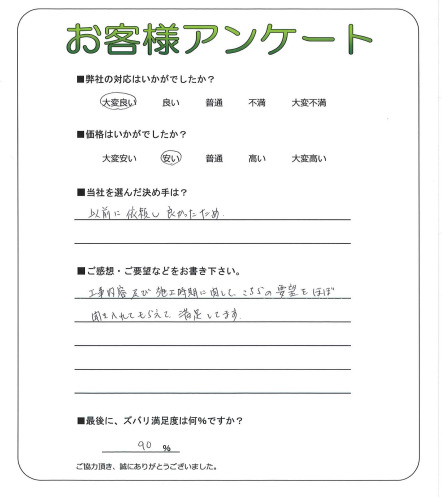 お客様アンケート
■弊社の対応はいかがでしたか？
大変良い 良い 普通 不満 大変不満
■価格はいかがでしたか？
大変安い 安い 普通 高い 大変高い
■当社を選んだ決め手は？
以前に依頼し良かったため.
■ご感想・ご要望などをお書き下さい。
工事内容及び施工時期に関して、こちらの要望をほぼ
聞き入れてもらえて満足してます.
■最後に、ズバリ満足度は何％ですか？
90 ％
ご協力頂き、誠にありがとうございました。